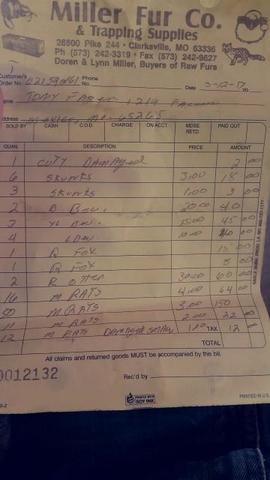 Miller Fur Co.
& Trapping Supplies
26500 Pike 244 • Clarksville, MO 63336
Ph (573) 242-3319 • Fax (573) 242-9627
Doren & Lynn Miller, Buyers of Raw Furs
Customer's Order No. Phone No. Date 3-12-17
Address Mexico, Mo. 65265
SOLD BY CASH C.O.D. CHARGE ON ACCT. MDSE. RETD. PAID OUT
QUAN. DESCRIPTION PRICE AMOUNT
1 Coty Damaged 2 00
6 Skunks 3.00 18 00
3 Skunks 1.00 3 00
2 20.00 40
3 15.00 45 00
4 10.00 00
1 R Fox 15 00
1 R Fox 8 00
2 R otter 30.00 60 00
16 m RATS 4.00 64 00
m RATS 3.00 150
11 m RATS 2.00 22 00
12 m RATS Damaged smaller 1.00 TAX 12 00
TOTAL
All claims and returned goods MUST be accompanied by this bill.
0012132 Rec'd by
PRINTED WITH SOY INK
PRINTED IN U.S.A.